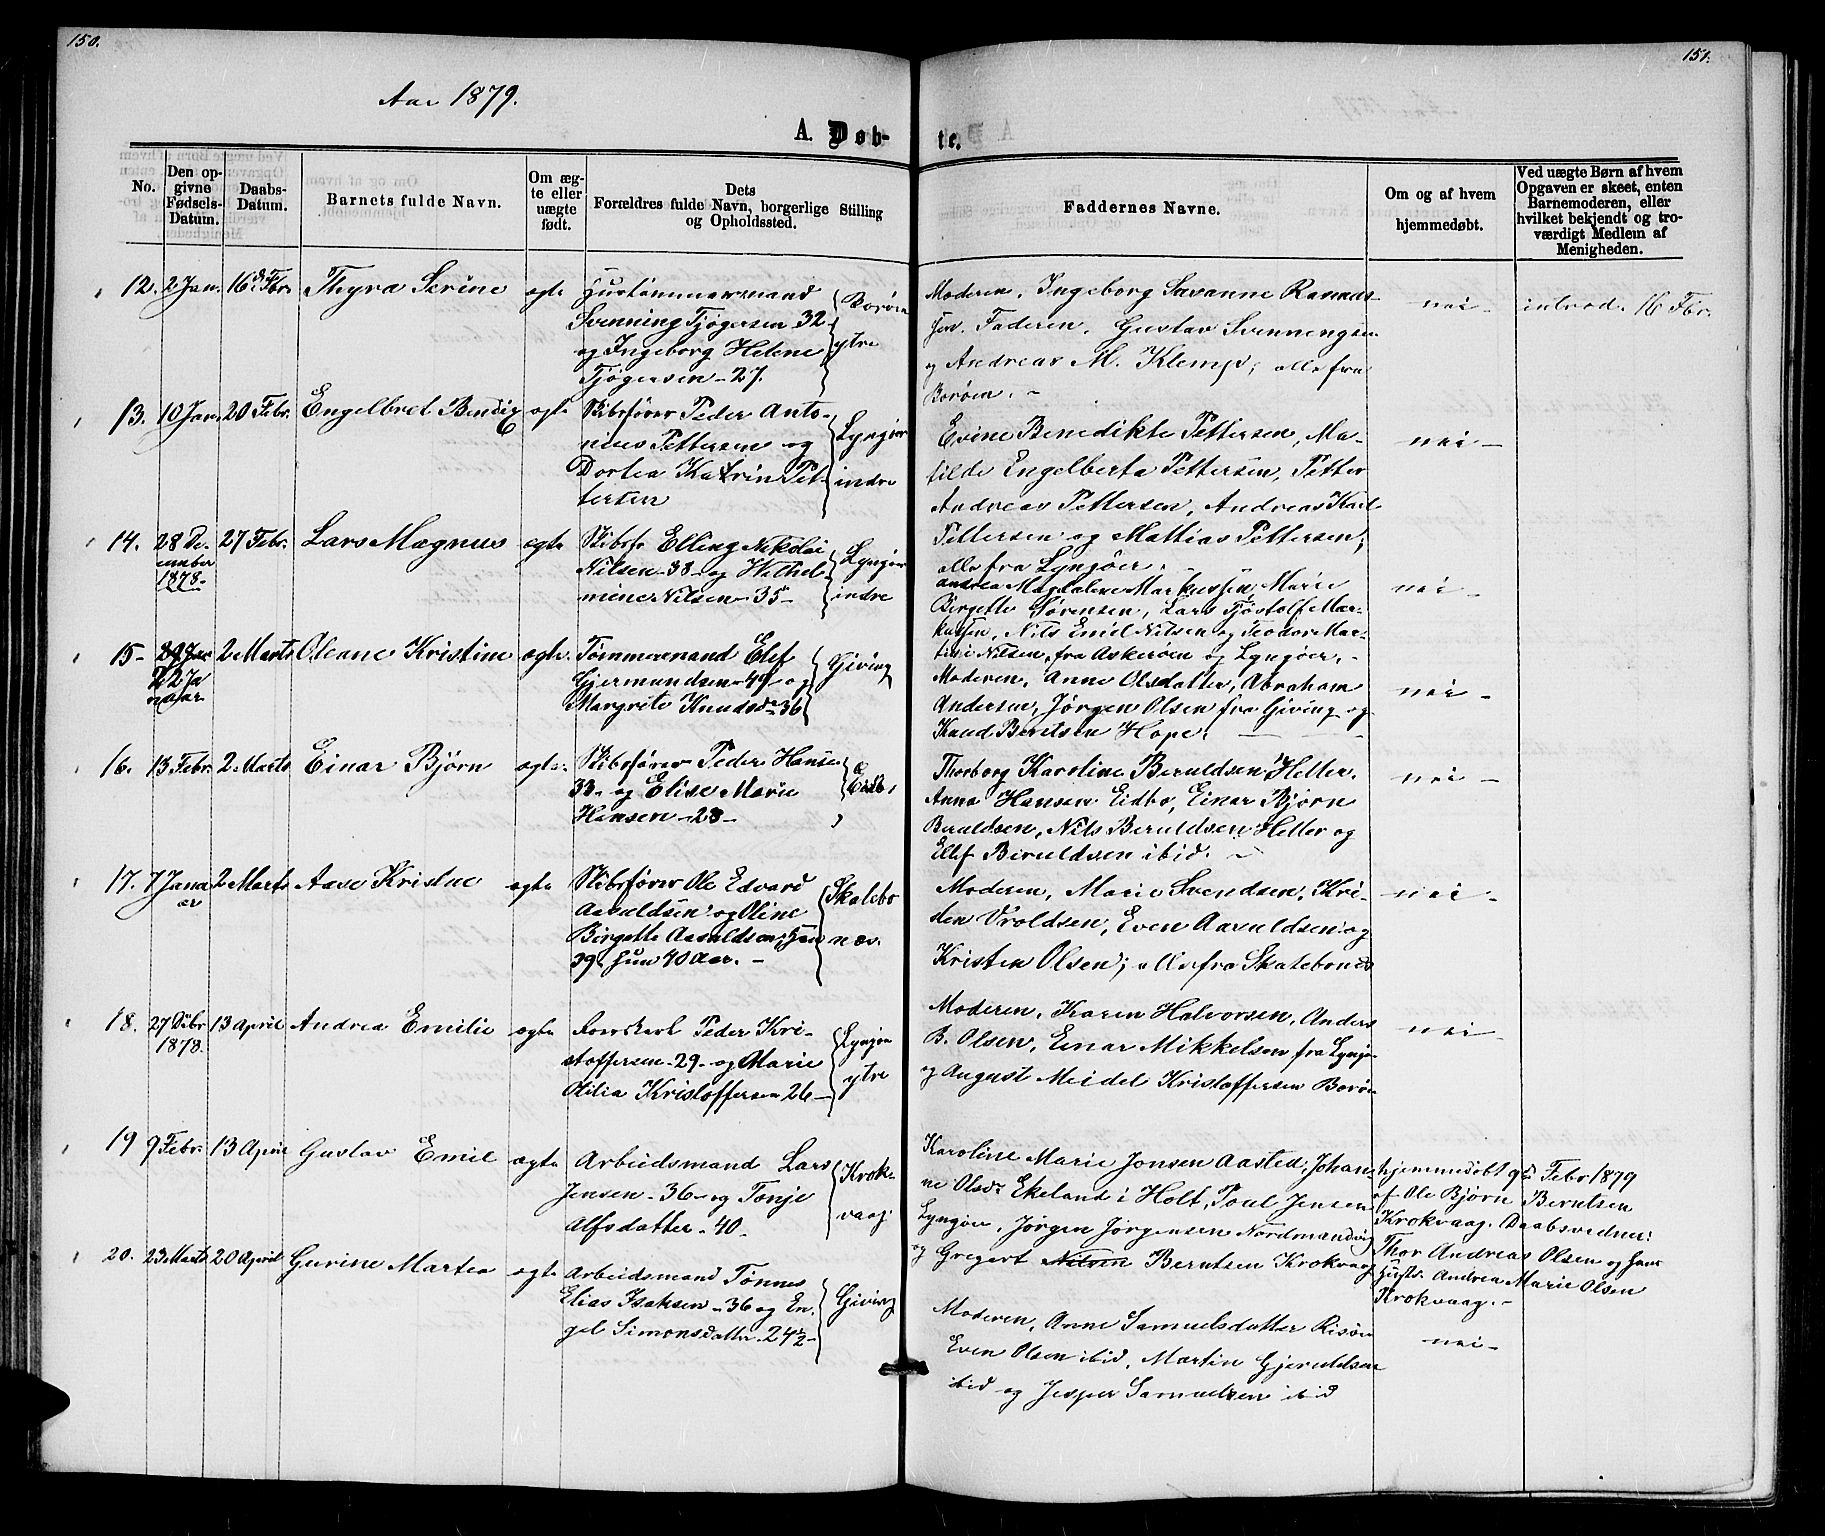 150.
Aar 1879.
A. Døb-
No.
Den op-
givne
Fødsels-
Datum.
Daabs-
Datum.
Barnets fulde Navn.
Om æg-
te eller
uægte
født.
Dets
Forældres fulde Navn, borgerlige Stilling
og Opholdssted.
12. 2 Jan. 16 Febr. Thyra Serine ægte
Huustømmermand
Svenning Tjøgersen 32
og Ingeborg Helene
Tjøgersen - 27.
Borøen
ytre
13. 10 Jan. 20 Febr. Engelbret Bendix ægte
Skibsfører Peder Anto-
nius Pettersen og
Dortea Katrin Pet-
tersen
Lyngøer
indre
14. 28 De-
cember
1878. 27 Febr. Lars Magnus ægte
Skibsfø Elling Nikolai
Nilsen - 38 - og Wilhel-
mine Nilsen - 35 -
Lyngøer
indre
15 - 22 Ja
nuar 2 Marts Oleane Kristine ægte.
Tømmermand Elef
Gjermundsen - 49 - og
Margrete Knudsdr 36
Giving
16. 13 Febr. 2 Marts Einar Bjørn ægte.
Skibsfører Peder Hansen
33 - og Elise Marie
Hansen - 28 -
Eidbo
17. 7 Janu
ar 2 Marts Aase Kristne ægte
Skibsfører Ole Edvard
Aaruldsen og Oline
Birgette Aaruldsen, han
39, hun 40 Aar. -
Skatebo
næs.
18. 27 Debr
1878. 13 April Andrea Emilie ægte
Roerskarl Peder Kri-
stoffersen - 29 - og Marie
Otilia Kristoffersen 26 -
Lyngøer
ytre
19 9 Febr. 13 April Gustav Emil ægte
Arbeidsmand Lars
Jensen - 36 - og Tonje
Alfsdatter - 40 -
Krok-
vaag.
20. 23 Marts 20 April Gurine Martea ægte
Arbeidsmand Tønnes
Elias Isaksen - 36 og En-
gel Simonsdatter. 24½ -
Giving
151.
te.
Faddernes Navne.
Om og af hvem
hjemmedøbt.
Ved uægte Børn af hvem
Opgaven er skeet, enten
Barnemoderen, eller
hvilket bekjendt og tro-
værdigt Medlem af
Menigheden.
Moderen, Ingeborg Savanne Rasmus-
sen. Faderen, Gustav Svenningsen
og Andreas M. Klemp; alle fra
Borøen. -
nei - introd. 16 Fbr.
Evine Benedikte Pettersen, Ma-
tilde Engelberta Pettersen, Petter
Andreas Pettersen, Andreas Karl
Pettersen og Mattias Pettersen;
alle fra Lyngøer.
nei -
Andrea Magdalene Markussen, Marie
Birgette Sørensen, Lars Tjøstolf Mar-
kussen, Nils Emil Nilsen og Teodor Mar-
tini Nilsen, fra Askerøen og Lyngøer. -
nei -
Moderen, Anne Olsdatter, Abraham
Andersen, Jørgen Olsen fra Giving og
Knud Berntsen Hope.
nei -
Thorborg Karoline Beruldsen Heller,
Anna Hansen Eidbo, Einar Bjørn
Beruldsen, Nils Beruldsen Heller og
Ellef Beruldsen ibid. -
nei -
Moderen, Marie Svendsen, Kri-
sten Vroldsen, Even Aaruldsen og
Kristen Olsen; alle fra Skatebonæs
nei -
Moderen, Karen Halvorsen, Anders
B. Olsen, Einar Mikkelsen fra Lyngø-
og August Meidel Kristoffersen Borøe
nei -
Karoline Marie Jonsen Aasted, Johan-
ne Olsdr Ekeland i Holt, Poul Jensen
Lyngøer, Jørgen Jørgensen Nordmandvig
og Gregert Nilsen Berntsen Krokvaag
hjemmedøbt 9de Febr 1879
af Ole Bjørn Berntsen
Krokvaag. Daabsvidner:
Thor Andreas Olsen og hans
Hustr. Andrea Marie Olsen
Krokvaag. -
Moderen, Anne Samuelsdatter Risøen
Even Olsen ibid, Martin Gjeruldsen
ibid og Jesper Samuelsen ibid
nei -